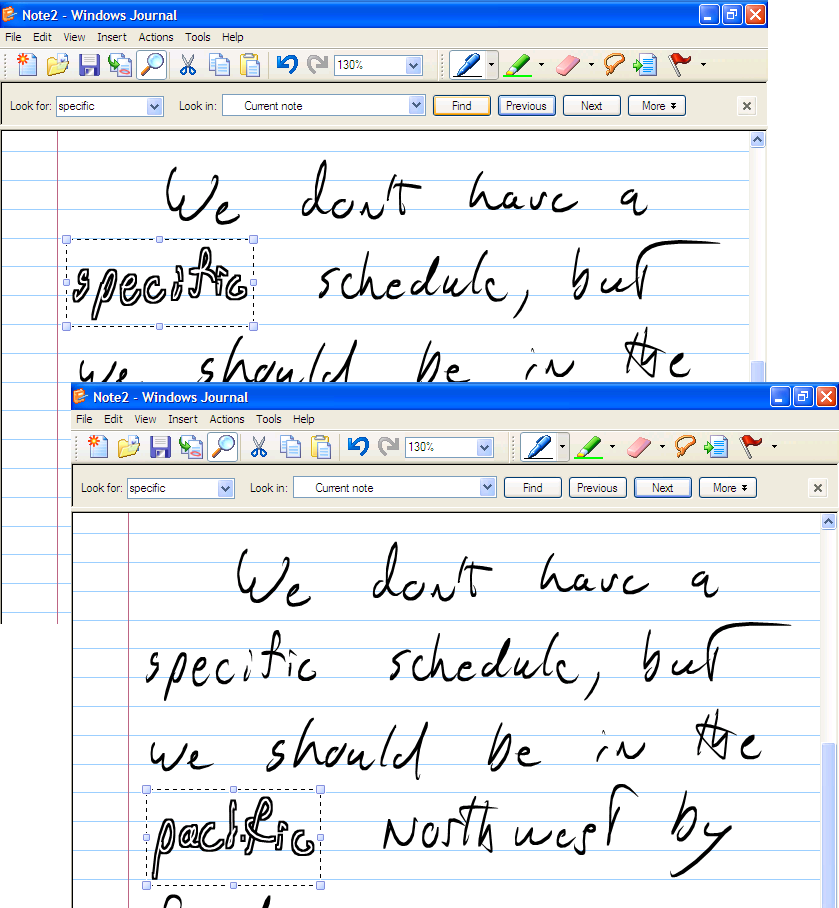 Note2 - Windows Journal
File Edit View Insert Actions Tools Help
130%
Look for: specific Look in: Current note Find Previous Next More
We don't have a
specific schedule, but
we should be in the
Note2 - Windows Journal
File Edit View Insert Actions Tools Help
130%
Look for: specific Look in: Current note Find Previous Next More
We don't have a
specific schedule, but
we should be in the
pacific Northwest by